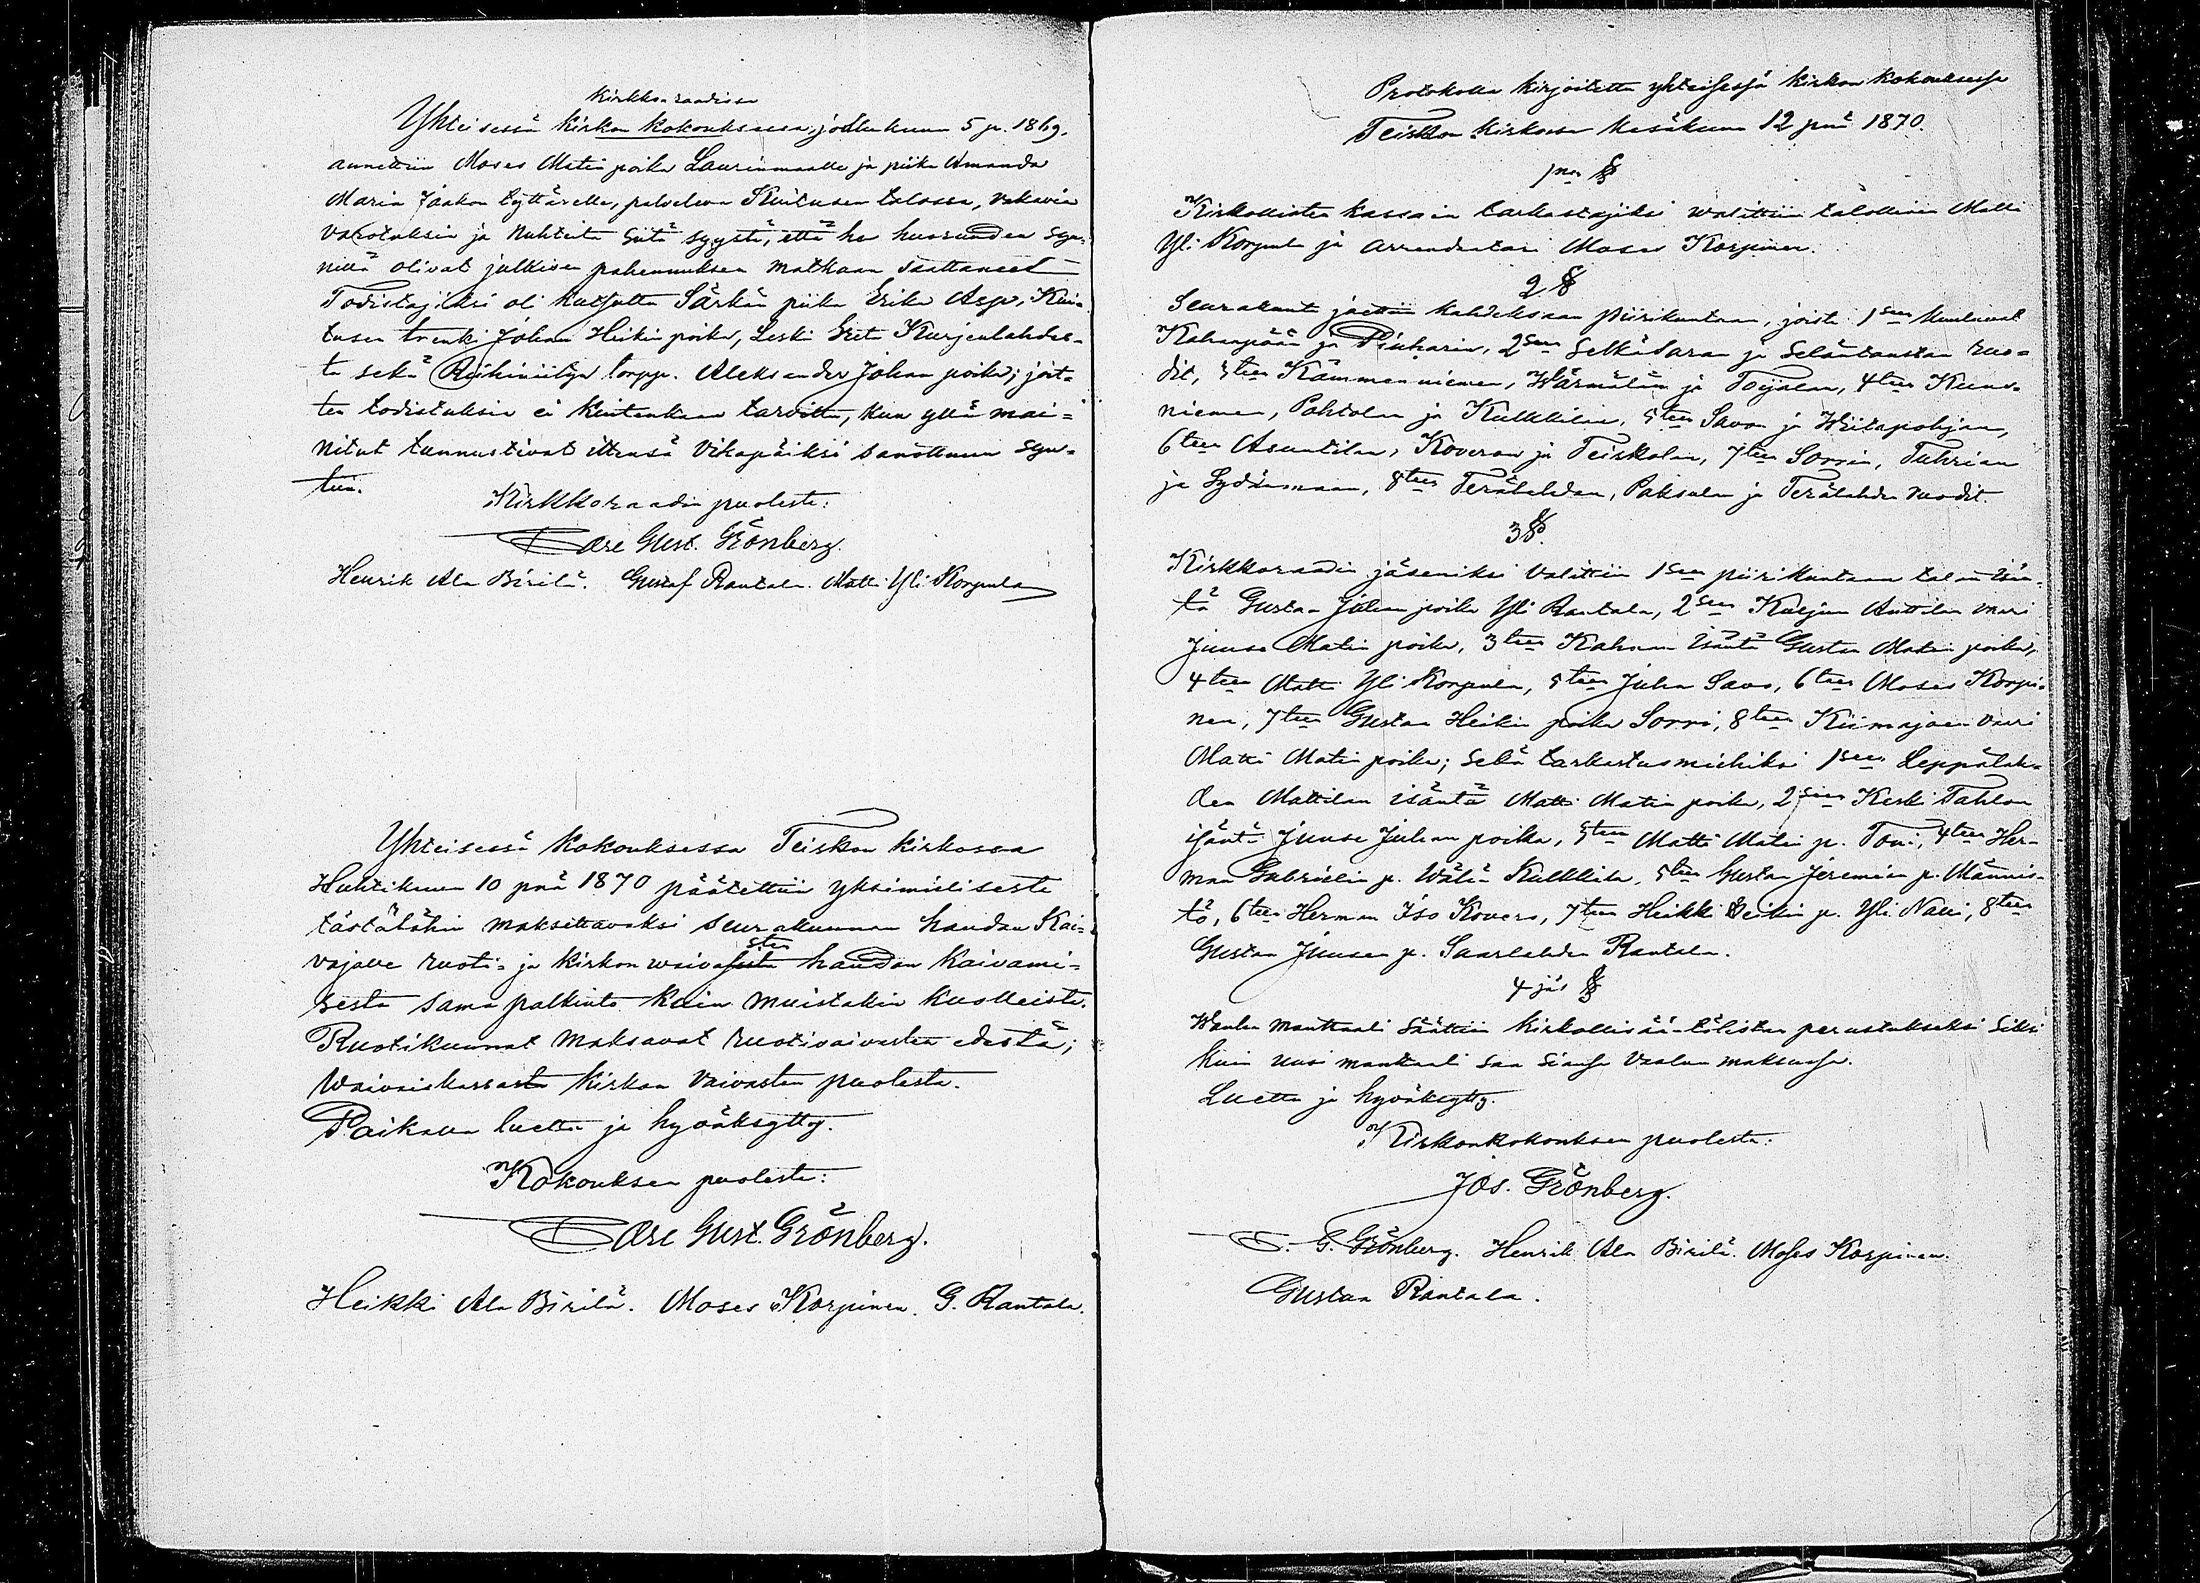 kirkko-raadissa
Yhteisessä kirkon kokouksessa joulukuun 5 p. 1869.
annettiin Moses Matin poika Laurinmaalle ja piika Amanda
Maria Jaakon tyttärelle, palveleva Kuitusen talossa, vakavia
varotuksia ja nuhteita siitä syystä, että he huoruuden syn-
nillä olivat julkisen pahennuksen matkaan saattaneet
Todistajiksi oli kutsuttu Särkän piika Erika Asp, Kui-
tusen trenki Johan Heikin poika, Leski Greta Kurjenlahdes-
ta sekä Riihiniityn torpp. Aleksander Johan poika; joit-
ten todistuksia ei kuitenkaan tarvittu, kun yllä mai-
nitut tunnustivat ittensä vikapäiksi sanottuun syn-
tiin.
Kirkkoraadin puolesta:
Care Gust. Grönberg.
Henrik Ala Birilä. Gustaf Rantala. Matti Yli Korpula
Yhteisessä kokouksessa Teiskon kirkossa
Huhtikuun 10 pnä 1870 päätettiin yksimielisesti
tästälähin maksettavaksi seurakunnan haudan kai-
vajalle ruoti- ja kirkon waivasten haudan kaivami-
sesta sama palkinto kuin muistakin kuolleista.
Ruotikunnat maksavat ruotivaivasten edestä;
Waivaiskassasta kirkon vaivasten puolesta.
Paikalla luettu ja hyväksytty.
Kokouksen puolesta:
Care Gust. Grönberg.
Heikki Ala Birilä. Moses Korpinen. G. Rantala.
Protokolla kirjoitettu yhteisessä kirkon kokouksessa
Teiskon kirkossa kesäkuun 12 pnä 1870.
1nen §
Kirkollisten kassain tarkastajiksi walittiin talollinen Matti
Yli Korpula ja arrendatori Moses Korpinen.
2 §
Seurakunta jaettiin kahdeksaan piirikuntaan, joista 1seen kuuluvat
Kahanpään ja Piuharin, 2seen Selkäsaran ja Seläntaustan ruo-
dit, 3teen Kämmenniemen, Wärmälän ja Tojalan, 4teen Kuno-
niemen, Pohtolan ja Kulkkilan, 5teen Savon ja Wiitapohjan,
6teen Asuntilan, Koveron ja Teiskolan, 7teen Sorrin, Tuhrian
ja Sydänmaan, 8teen Terälahden, Paksulan ja Terälahden ruodit
3 §.
Kirkkoraadin jäseniksi valittiin 1seen piirikuntaan talon isän-
tä Gustaa Juhan poika Yli Rantala, 2seen Kaljun Anttilan vaari
Juuse Matin poika, 3teen Kahman isäntä Gustaa Matin poika,
4teen Matti Yli Korpula, 5teen Juha Savo, 6teen Moses Korpi-
nen, 7teen Gustaa Heikin poika Sorri, 8teen Kiimajoen vaari
Matti Matin poika; sekä tarkastusmiehiksi 1seen Leppälah-
den Mattilan isäntä Matti Matin poika, 2seen Keski Tahlon
isäntä Juuse Juhan poika, 3teen Matti Matin p. Toni, 4teen Her-
man Gabrielin p. Wäli Kulkkila, 5teen Gustaa Jeremian p. Männis-
tö, 6teen Herman Iso Kovero, 7teen Heikki Heikin p. Yli Nalli, 8teen
Gustaa Juusen p. Saarlahden Rantala.
4 jäs §
Wanha manttaali säättiin kirkollisää-tölisten perustukseksi siksi
kuin uusi manttaali saa siansa vaalun maksussa.
Luettu ja hyväksytty.
Kirkonkokouksen puolesta:
Jos. Grönberg.
C. G. Grönberg. Henrik Ala Birilä. Moses Korpinen.
Gustaa Rantala.